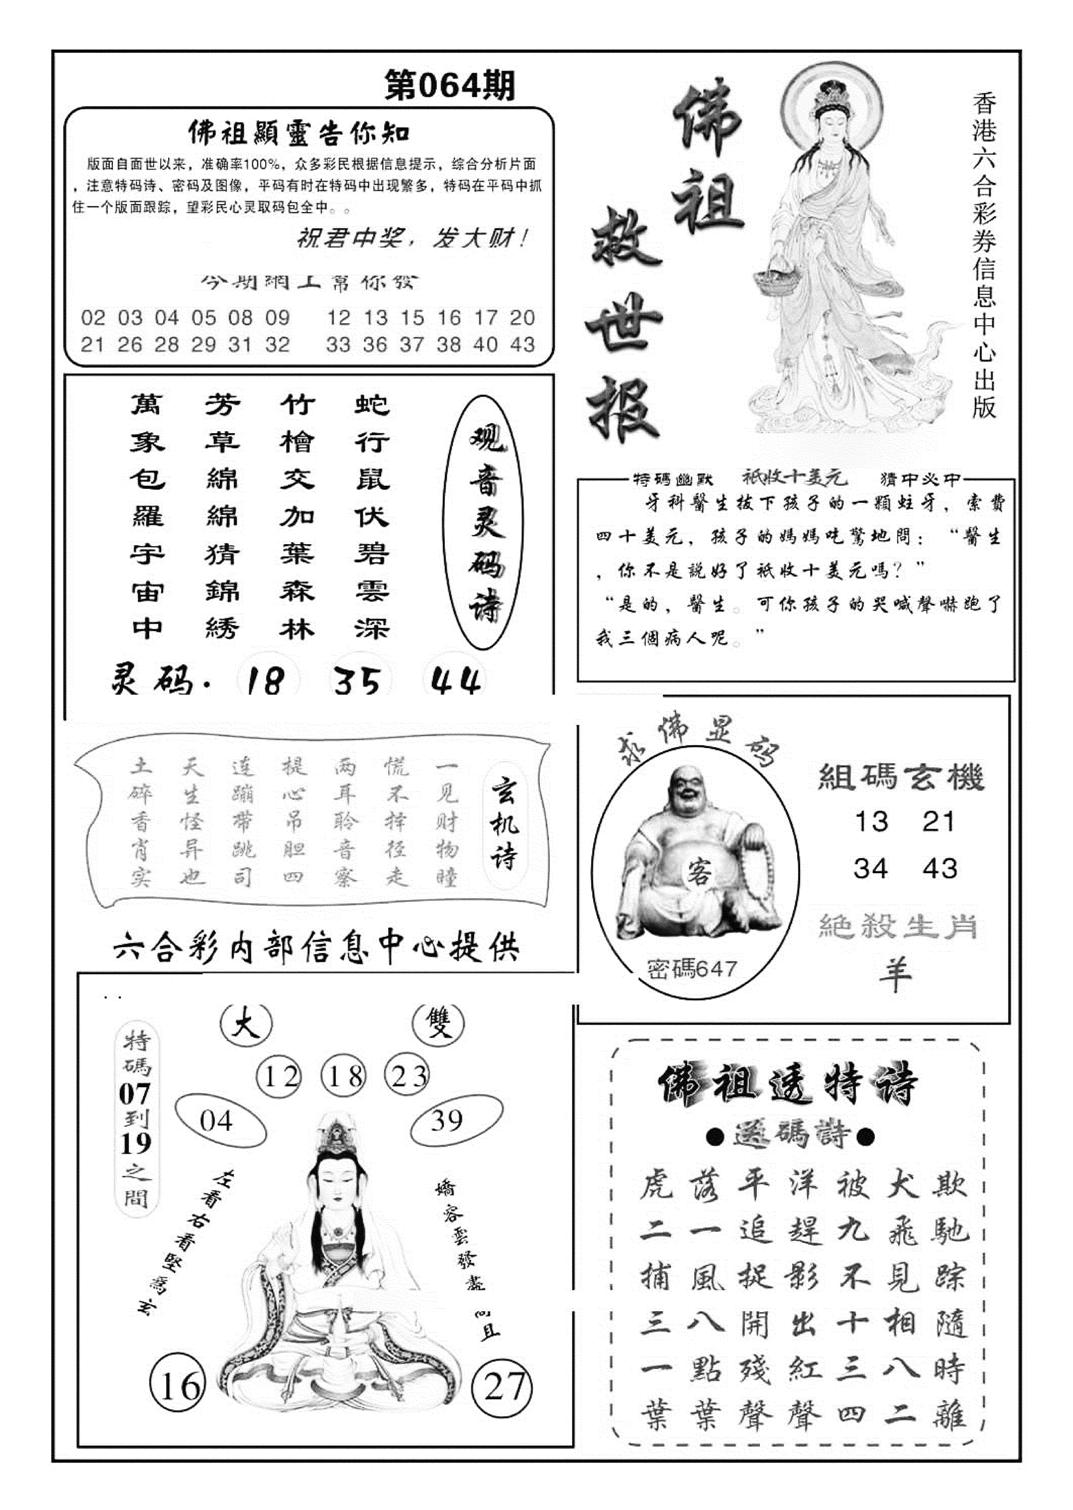 第064期
佛祖顯靈告你知
版面自面世以来，准确率100%，众多彩民根据信息提示，综合分析片面
，注意特码诗、密码及图像，平码有时在特码中出现繁多，特码在平码中抓
住一个版面跟踪，望彩民心灵取码包全中。。
祝君中奖，发大财！
今期網上幫你發
02 03 04 05 08 09 12 13 15 16 17 20
21 26 28 29 31 32 33 36 37 38 40 43
佛祖
救世报
香港六合彩券信息中心出版
观音灵码诗
蛇行鼠伏碧雲深
竹檜交加葉森林
芳草綿綿猜錦綉
萬象包羅宇宙中
灵码. 18 35 44
特碼幽默 祇收十美元 猜中必中
牙科醫生拔下孩子的一顆蛀牙，索費
四十美元，孩子的媽媽吃驚地問：“醫生
，你不是説好了祇收十美元嗎？”
“是的，醫生。可你孩子的哭喊聲嚇跑了
我三個病人呢。”
玄机诗
一见财物瞳
慌不择径走
两耳聆音察
提心吊胆四
连蹦带跳司
天生怪异也
土碎香肖实
求佛显码
客
密碼647
組碼玄機
13 21
34 43
絶殺生肖
羊
六合彩内部信息中心提供
大 雙
12 18 23
04 39
特碼07到19之間
左看右看堅爲玄
嬌容雲發盡
且
16 27
佛祖透特诗
●送碼詩●
虎落平洋被犬欺
二一追趕九飛馳
捕風捉影不見踪
三八開出十相隨
一點殘紅三八時
葉葉聲聲四二離